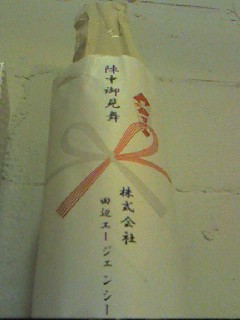 陣中御見舞
株式会社
田辺エージェンシー